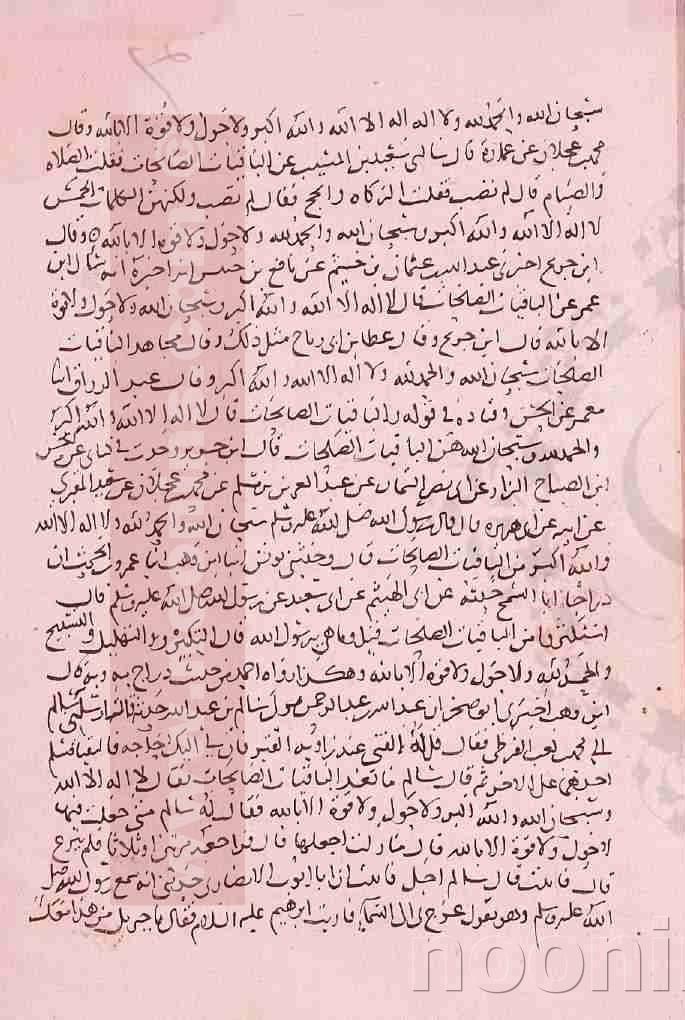 سبحان الله والحمد لله ولا اله الا الله والله اكبر ولا حول ولا قوة الا بالله وقال
محمد بن عجلان عن عمارة قال سالني سعيد بن المسيب عن الباقيات الصالحات فقلت الصلاه
والصيام قال لم تصب فقلت الزكاه والحج فقال لم تصب ولكنهن الكلمات الخمس
لا اله الا الله والله اكبر وسبحان الله والحمد لله ولا حول ولا قوه الا بالله وقال
ابن جريج اخبرني عبد الله بن عثمان بن خثيم عن نافع بن سرجس انه اخبره انه سال ابن
عمر عن الباقيات الصالحات قال لا اله الا الله والله اكبر وسبحان الله ولا حول ولا قوة
الا بالله قال ابن جريج وقال عطا بن ابي رباح مثل ذلك وقال مجاهد الباقيات
الصالحات سبحان الله والحمد لله ولا اله الا الله والله اكبر وقال عبد الرزاق انبا
معمر عن الحسن وقتاده في قوله والباقيات الصالحات قال لا اله الا الله والله اكبر
والحمد لله وسبحان الله هن الباقيات الصالحات قال ابن جرير وجدت في كتابي عن الحسن
ابن الصباح البزار عن ابي نصر التمار عن عبد العزيز بن مسلم عن محمد بن عجلان عن سعيد المقبري
عن ابيه عن ابي هريره قال قال رسول الله صلى الله عليه وسلم سبحان الله والحمد لله ولا اله الا الله
والله اكبر من الباقيات الصالحات قال وحدثني يونس انبا ابن وهب انبا عمرو بن الحرث ان
دراجا ابا السمح حدثه عن ابي الهيثم عن ابي سعيد عن رسول الله صلى الله عليه وسلم قال
استكثروا من الباقيات الصالحات قيل وما هي يرسول الله قال التكبير والتهليل والتسبيح
والحمد لله ولا حول ولا قوه الا بالله وهكذا رواه احمد من حديث دراج به وبه قال
ابن وهب اخبرني ابو صخر ان عبد الله بن عبد الرحمن مولى سالم بن عبد الله حدثه قال ارسلني سالم
الى محمد بن كعب القرظي فقال قل له القني عند زاويه القبر فان لي اليك حاجه فالتقيا فسلم
احدهما على الاخر ثم قال سالم ما تعد الباقيات الصالحات فقال لا اله الا الله
وسبحان الله والله اكبر ولا حول ولا قوة الا بالله فقال له سالم متى جعلت فيها
لا حول ولا قوة الا بالله قال ما زلت اجعلها قال فراجعه مرتين او ثلاثا فلم ينزع
قال فابيت قال سالم اجل فابيت فان ابا ايوب الانصاري حدثني انه سمع رسول الله صلى
الله عليه وسلم وهو يقول عرج بي الى السماء فاريت ابرهيم عليه السلام فقال يا جبريل من هذا معك
nooni